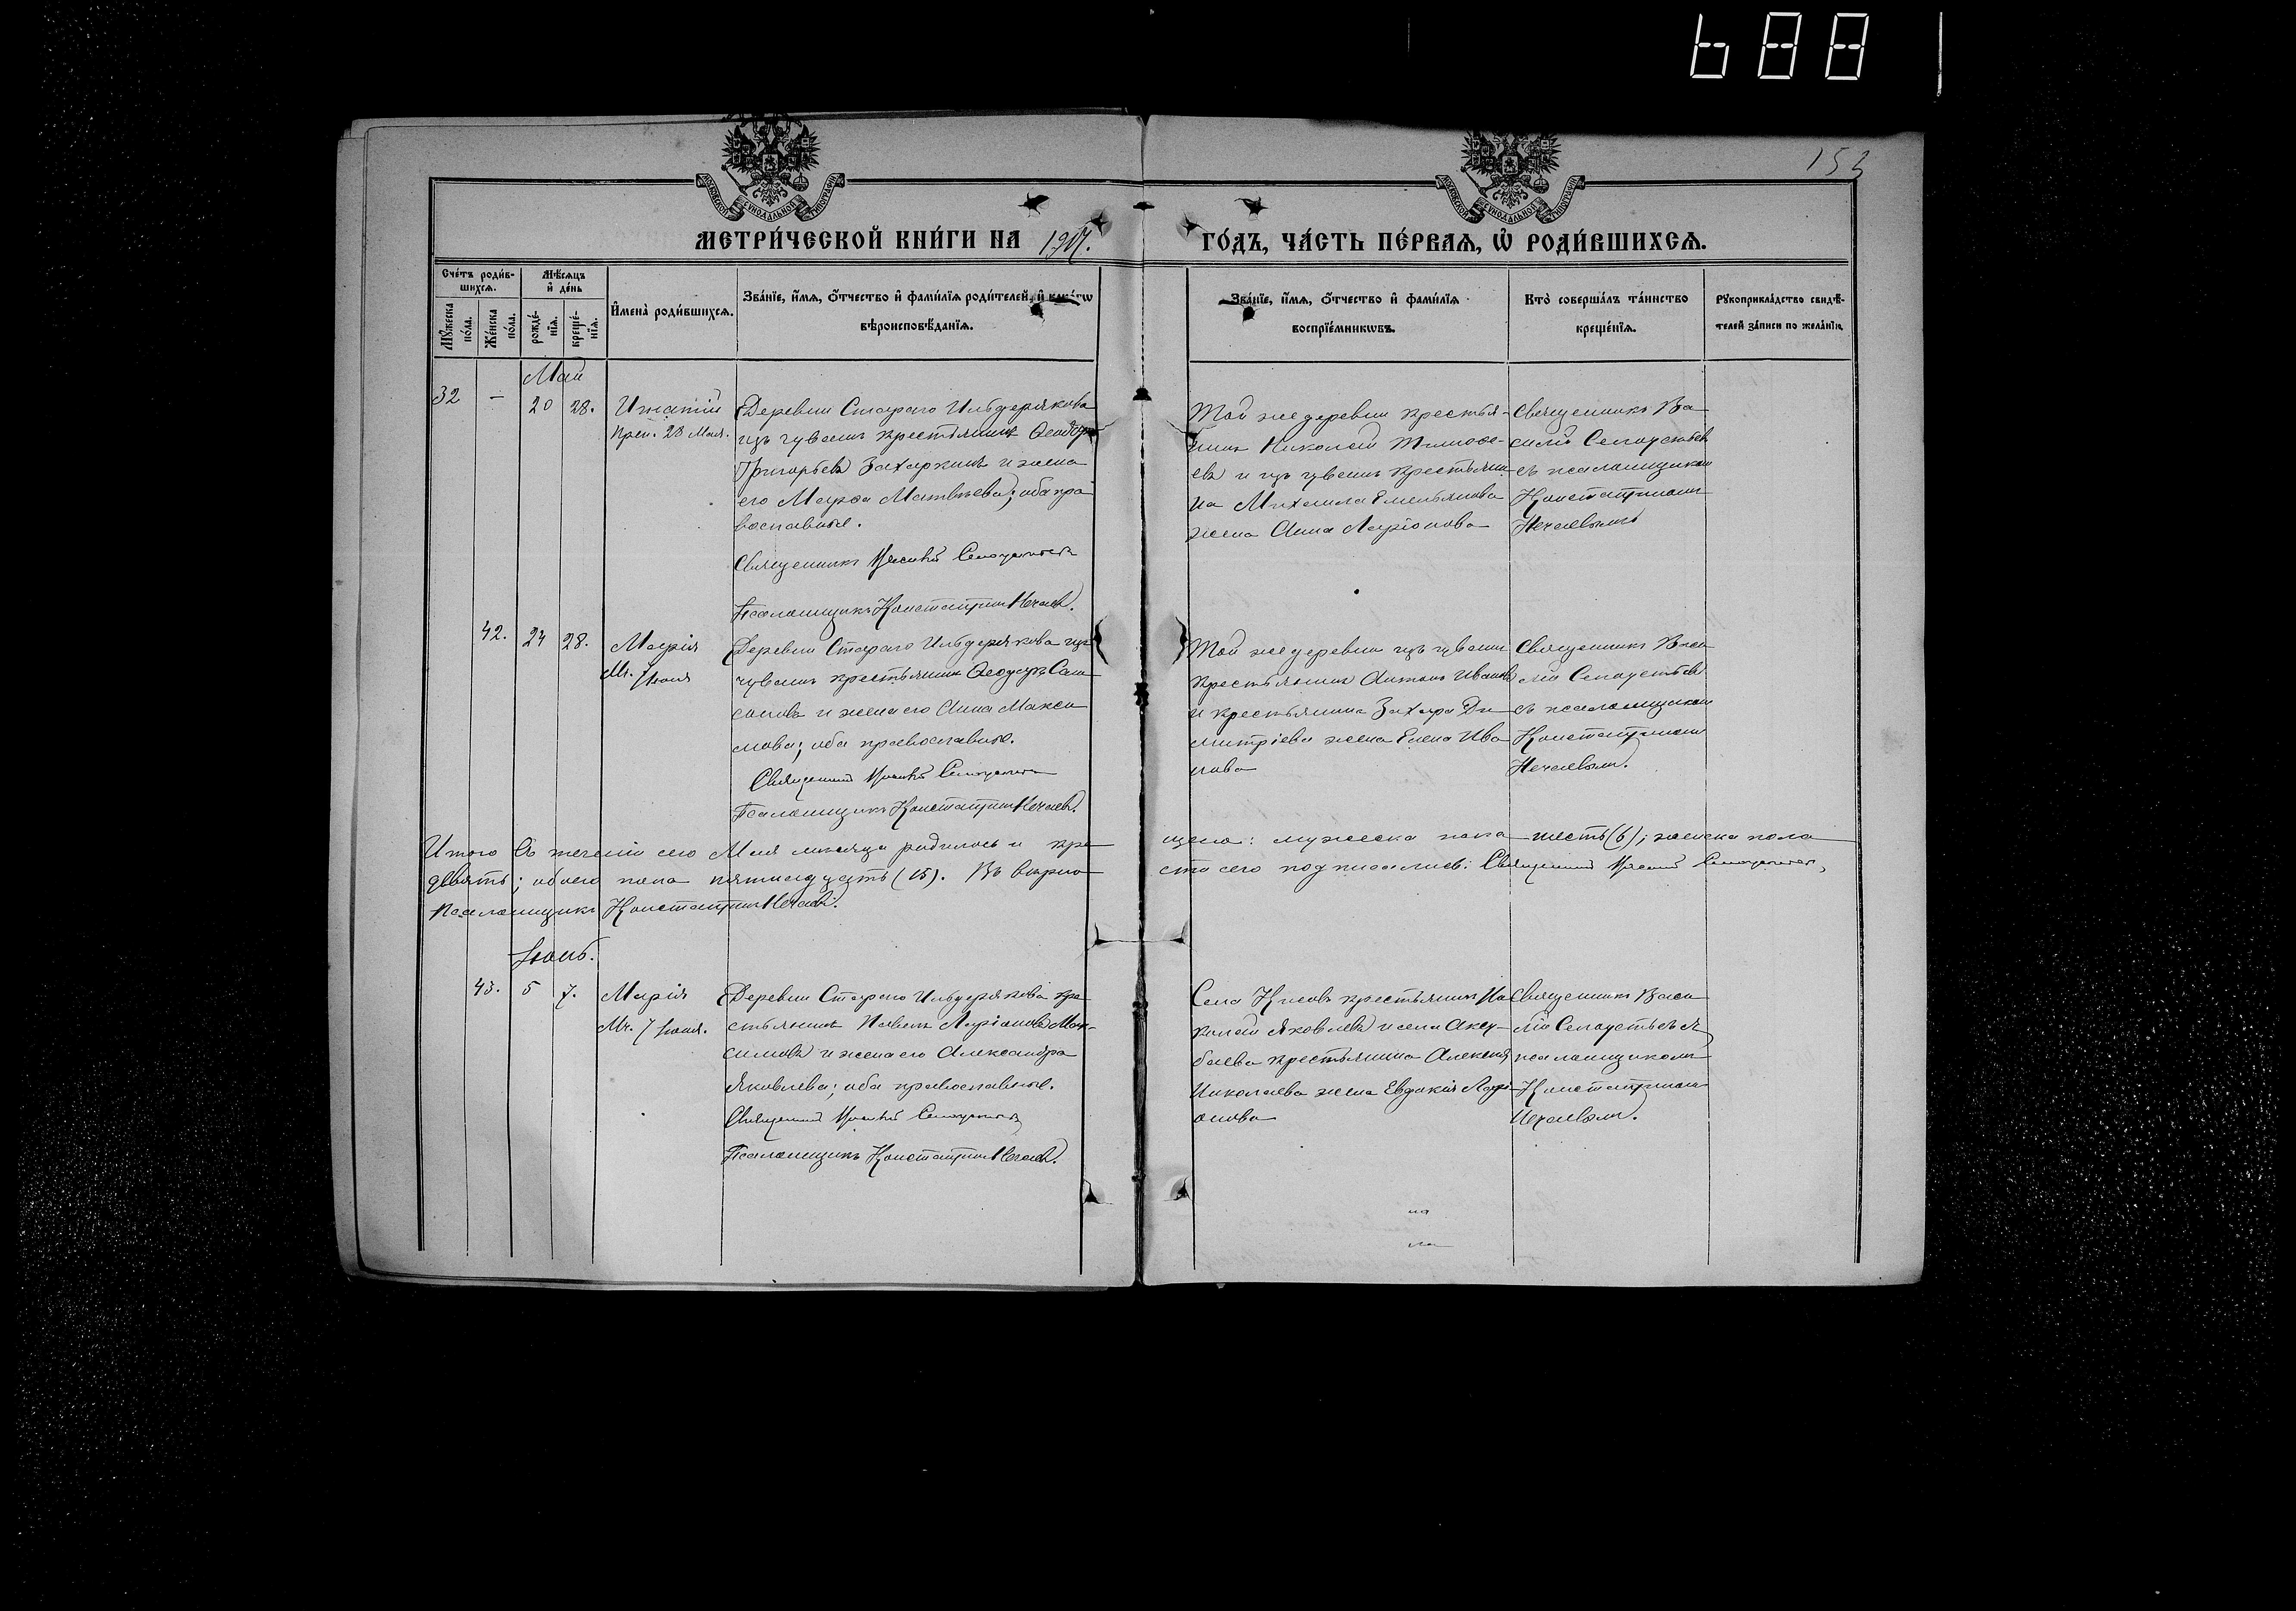 688
153
МОСКОВСКОЙ СѴНОДАЛЬНОЙ ТИПОГРАФІИ
МОСКОВСКОЙ СѴНОДАЛЬНОЙ ТИПОГРАФІИ
МЕТРИ́ЧЕСКОЙ КНИ́ГИ НА 1907.
ГО́ДЪ, ЧА́СТЬ ПЕ́РВАЯ, Ѡ҆ РОДИ́ВШИХСЯ.
Сче́тъ роди́в-
шихся.
Мѣ́сяцъ
и҆ де́нь
Мꙋ́жеска по́ла.
Же́нска по́ла.
рожде́-
нїя.
креще́-
нїя.
И҆мена̀ роди́вшихся.
Зва́нїе, и҆́мя, ѻ҆́тчество и҆ фами́лїя роди́телей, и҆ како́гѡ
вѣроисповѣ́данїя.
Зва́нїе, и҆́мя, ѻ҆́тчество и҆ фами́лїя
воспрїе́мникѡвъ.
Кто̀ соверша́лъ та́инство
креще́нїя.
Рꙋкоприкла́дство свидѣ́-
телей за́писи по жела́нїю.
Май
32 — 20 28.
Игнатій
28 Мая.
Деревни Стараго Ильдерякова
изъ чувашъ крестьянинъ Ѳеодоръ
Григорьевъ Захаркинъ и жена
его Марѳа Матвѣева; оба пра
вославные.
Священникъ Василій
Псаломщикъ Константинъ Нечаевъ.
Той же деревни крестья-
нинъ Николай Тимоѳе-
евъ и изъ чувашъ крестьяни-
на Михаила Емельянова
жена Анна Ларіонова
Священникъ Ва
силій
съ псаломщикомъ
Константиномъ
Нечаевымъ
42. 24 28.
Марія
Мч. 7 Іюня
Деревни Стараго Ильдерякова изъ
чувашъ крестьянинъ Ѳеодоръ Сам
соновъ и жена его Анна Макси
мова; оба православные.
Священникъ Василій
Псаломщикъ Константинъ Нечаевъ.
Той же деревни изъ чувашъ
крестьянинъ Антонъ Ивановъ
и крестьянина Захара Ди
митріева жена Елена Ива
нова
Священникъ Васи
лій
съ псаломщикомъ
Константиномъ
Нечаевымъ.
Итого въ теченіи сего Мая мѣсяца родилось и кре
щено: мужеска пола шесть (6); женска пола
девять; обоего пола пятнадцать (15). Въ вѣрно
сти сего подписались: Священникъ Василій
Псаломщикъ Константинъ Нечаевъ.
Іюнь.
43. 5 7.
Марія
Мч. 7 Іюня.
Деревни Стараго Ильдерякова кре
стьянинъ Павелъ Ларіоновъ Мак-
симовъ и жена его Александра
Яковлева; оба православные.
Священникъ Василій
Псаломщикъ Константинъ Нечаевъ.
Села крестьянинъ Ни
колай Яковлевъ и села Аксу-
баева крестьянина Алексѣя
Николаева жена Евдокія Лари
онова
Священникъ Васи
лій съ
псаломщикомъ
Константиномъ
Нечаевымъ.